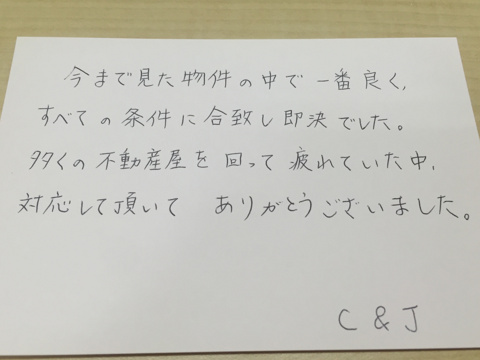 今まで見た物件の中で一番良く、
すべての条件に合致し即決でした。
多くの不動産屋を回って疲れていた中、
対応して頂いて ありがとうございました。
C & J